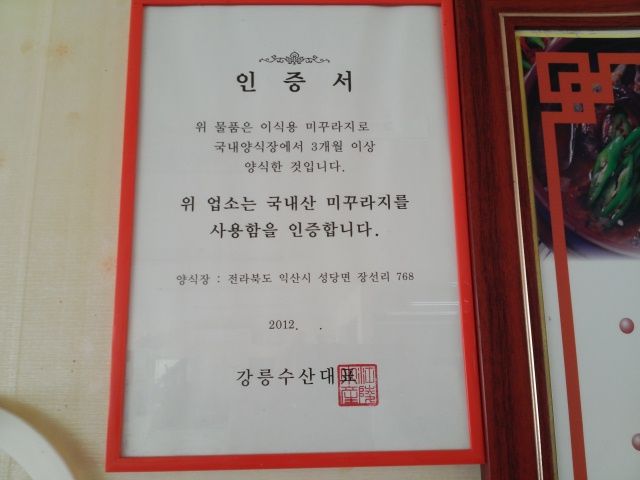 인 증 서
위 물품은 이식용 미꾸라지로
국내양식장에서 3개월 이상
양식한 것입니다.
위 업소는 국내산 미꾸라지를
사용함을 인증합니다.
양식장 : 전라북도 익산시 성당면 장선리 768
2012. .
강릉수산대표